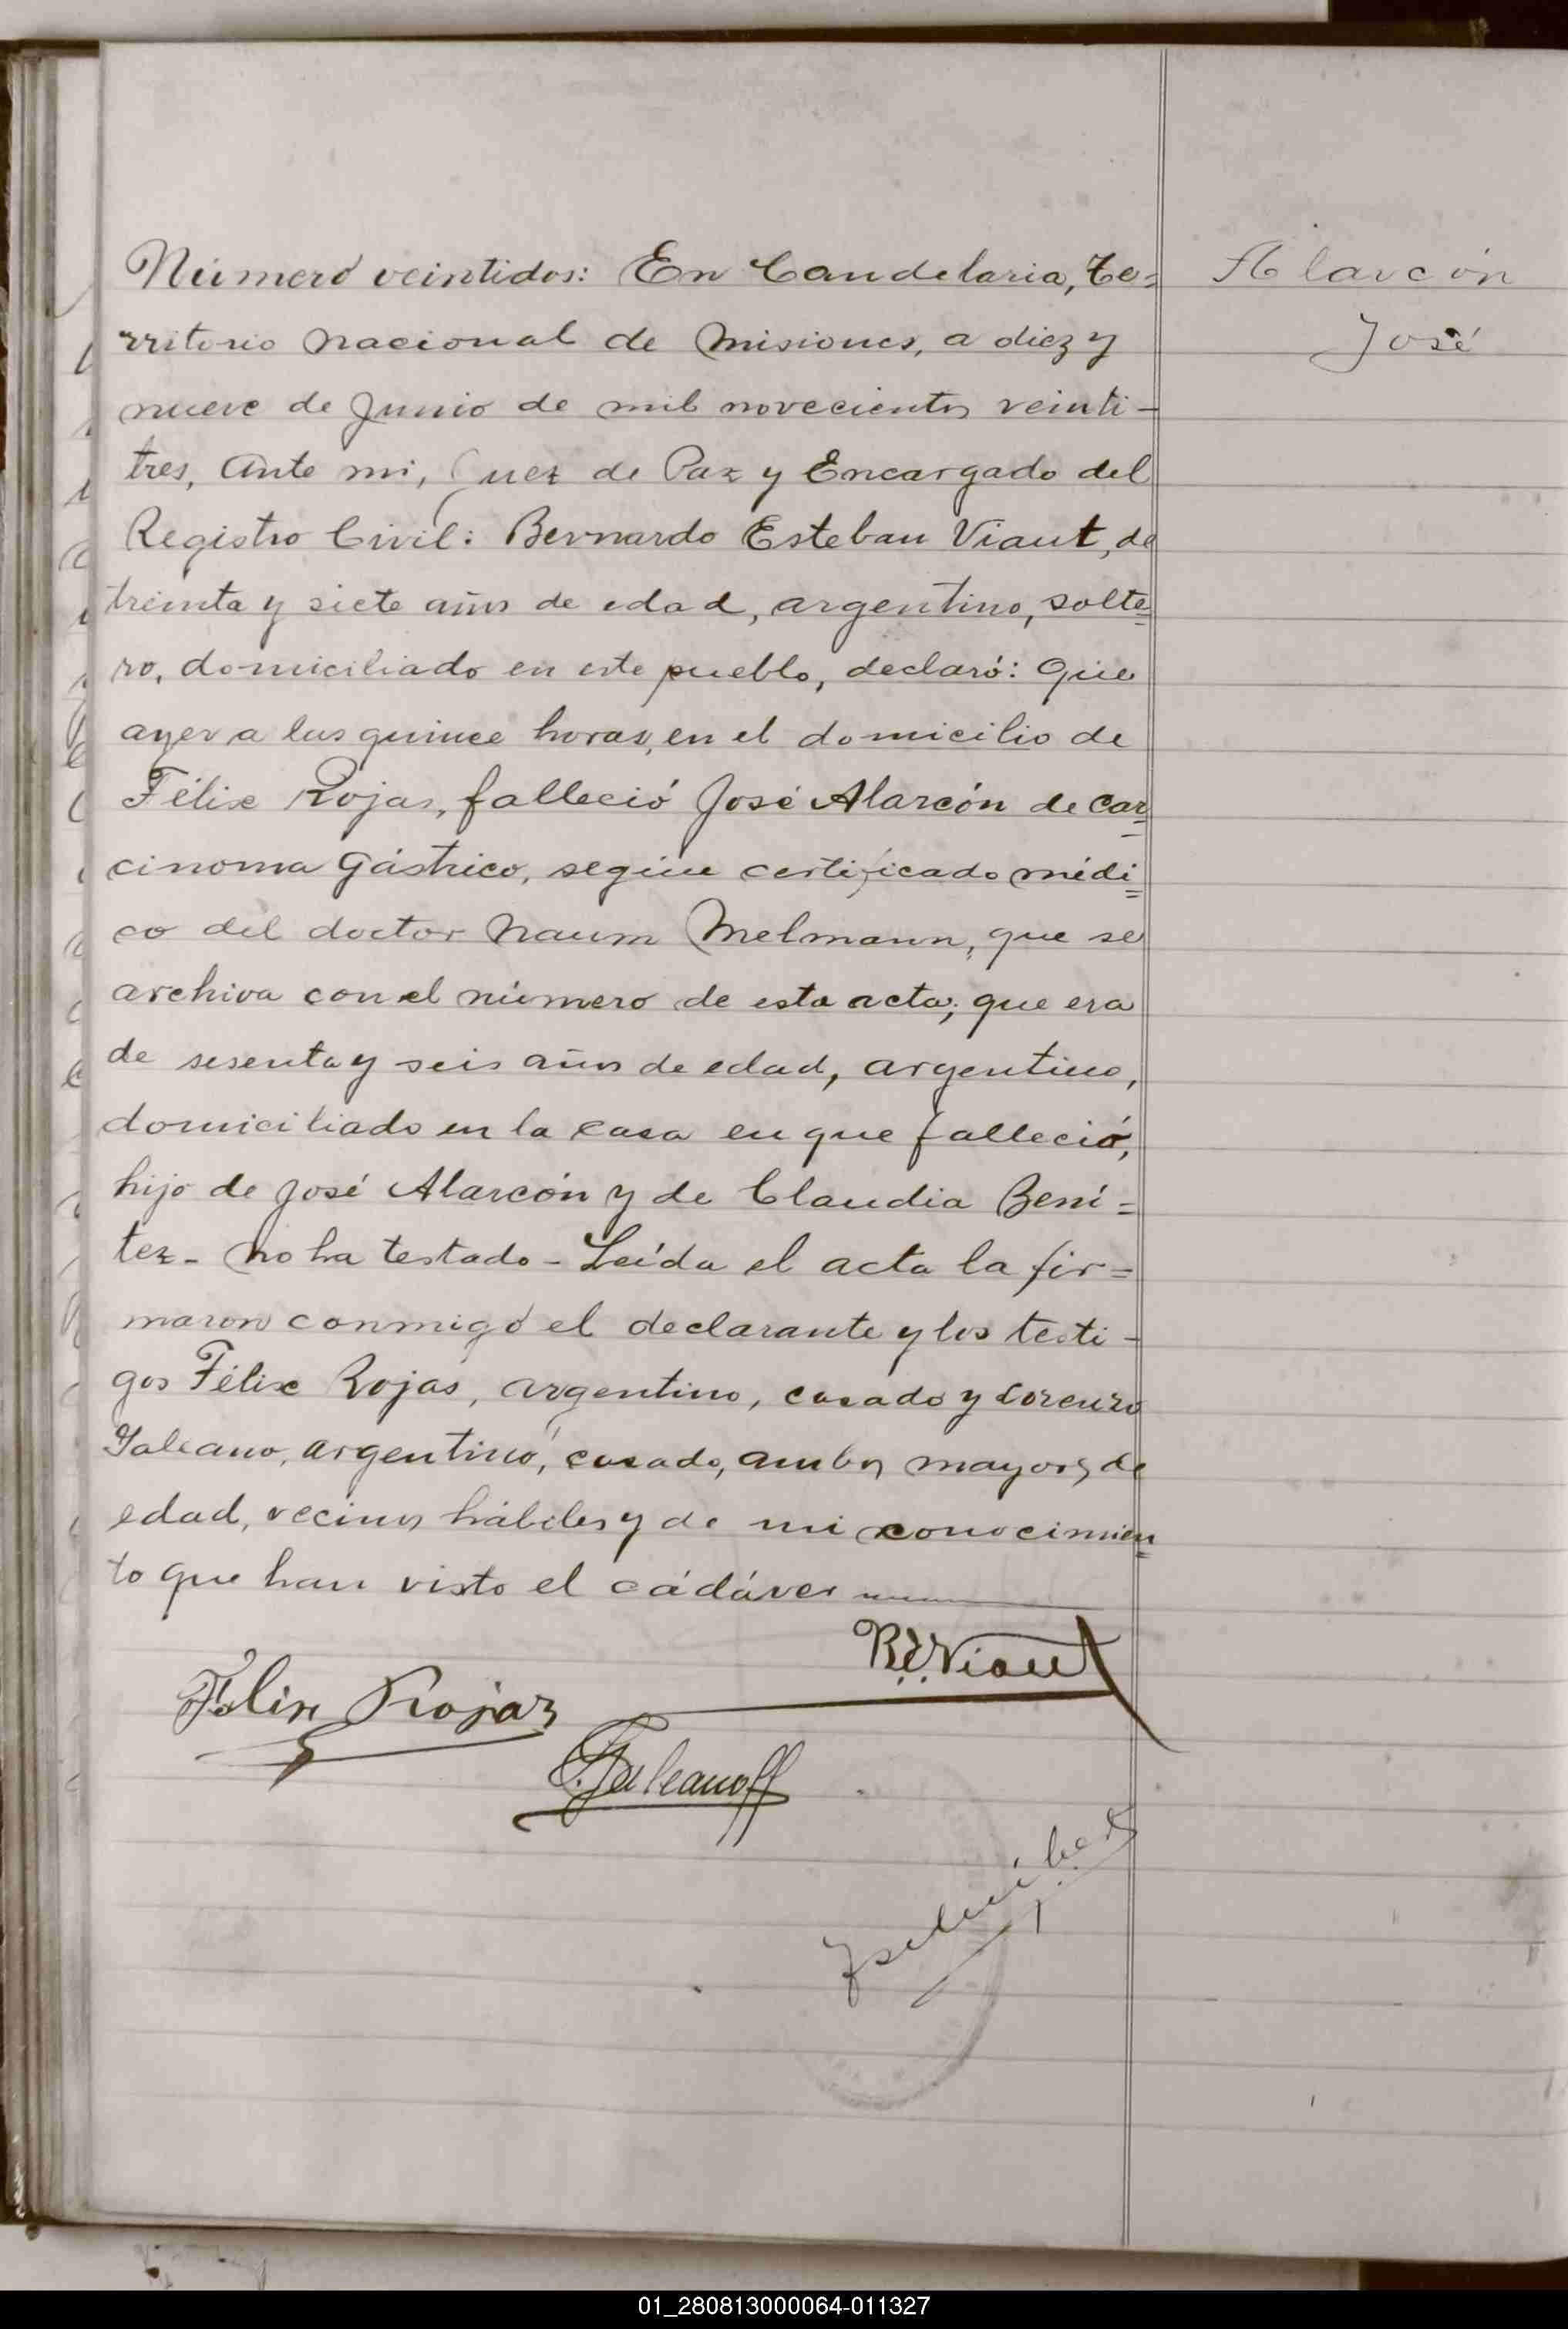 Número veintidos: En Candelaria, Te=
rritorio nacional de Misiones, a diez y
nueve de Junio de mil novecientos veinti-
tres, Ante mi, Juez de Paz y Encargado del
Registro Civil: Bernardo Esteban Viaut, de
treinta y siete años de edad, argentino, solte=
ro, domiciliado en este pueblo, declaró: Que
ayer a las quince horas, en el domicilio de
Félix Rojas, falleció José Alarcón de car=
cinoma gástrico, según certificado médi=
co del doctor Naum Melmann, que se
archiva con el número de esta acta; que era
de sesenta y seis años de edad, argentino,
domiciliado en la casa en que falleció,
hijo de José Alarcón y de Claudia Bení=
tez- No ha testado- Leída el acta la fir=
maron conmigo el declarante y los testi-
gos Félix Rojas, argentino, casado y Lorenzo
Galeano, argentino, casado, ambos mayores de
edad, vecinos hábiles y de mi conocimien=
to que han visto el cádáver
Alarcón
José
B.E. Viaut
Felix Rojas
L. Galeano
01_280813000064-011327